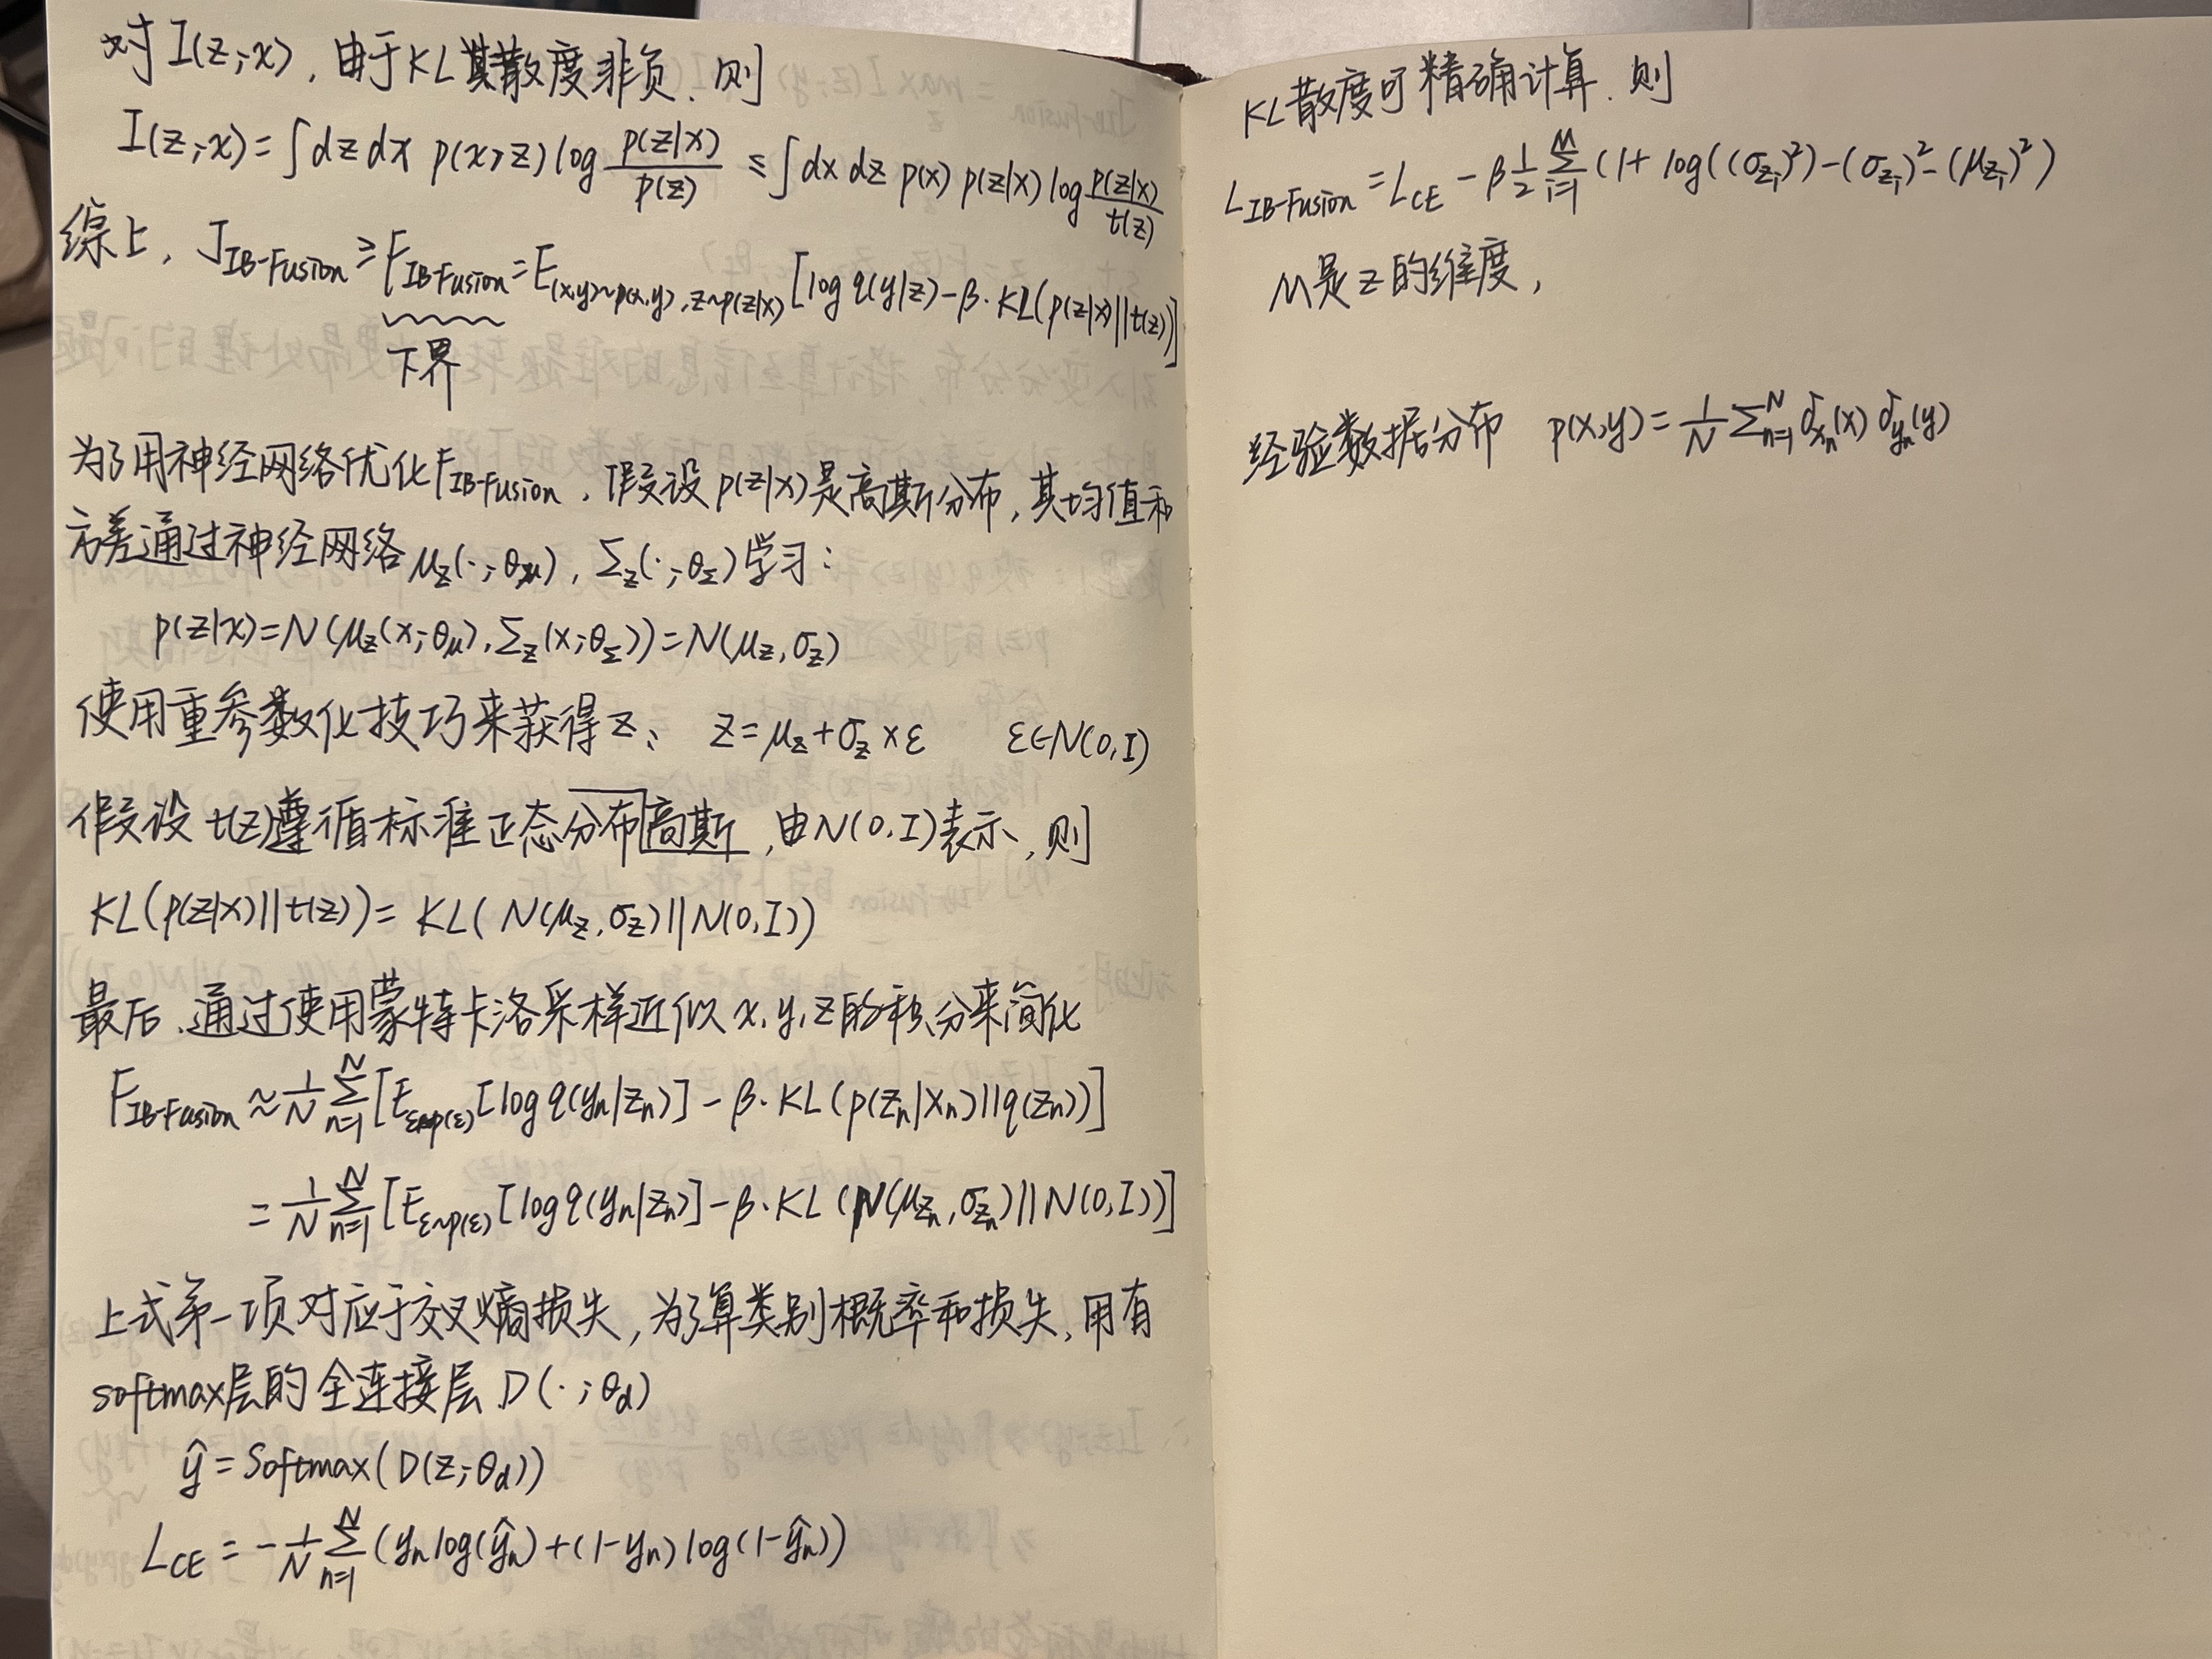 对 I(z;x), 由于KL散度非负, 则
I(z;x) = ∫dz dx p(x,z) log p(z|x)/p(z) ≤ ∫dx dz p(x) p(z|x) log p(z|x)/t(z)
综上, J_IB-Fusion ≥ F_IB-Fusion = E_(x,y)~p(x,y), z~p(z|x) [log q(y|z) - β·KL(p(z|x)||t(z))]
下界
为了用神经网络优化F_IB-Fusion, 假设p(z|x)是高斯分布, 其均值和
方差通过神经网络 μ_z(·;θ_μ), Σ_z(·;θ_Σ)学习:
p(z|x) = N(μ_z(x;θ_μ), Σ_z(x;θ_Σ)) = N(μ_z, σ_z)
使用重参数化技巧来获得z: z = μ_z + σ_z × ε ε∈N(0,I)
假设t(z)遵循标准正态分布高斯, 由N(0,I)表示, 则
KL(p(z|x)||t(z)) = KL(N(μ_z, σ_z)||N(0,I))
最后, 通过使用蒙特卡洛采样近似x,y,z的积分来简化
F_IB-Fusion ≈ 1/N Σ_{n=1}^N [E_ε~p(ε) [log q(y_n|z_n)] - β·KL(p(z_n|x_n)||q(z_n))]
= 1/N Σ_{n=1}^N [E_ε~p(ε) [log q(y_n|z_n)] - β·KL(N(μ_{z_n}, σ_{z_n})||N(0,I))]
上式第一项对应于交叉熵损失, 为了算类别概率和损失, 用有
softmax层的全连接层 D(·;θ_d)
ŷ = Softmax(D(z;θ_d))
L_CE = -1/N Σ_{n=1}^N (y_n log(ŷ_n) + (1-y_n) log(1-ŷ_n))
KL散度可精确计算, 则
L_IB-Fusion = L_CE - β 1/2 Σ_{i=1}^M (1 + log((σ_{z_i})^2) - (σ_{z_i})^2 - (μ_{z_i})^2)
M是z的维度,
经验数据分布 p(x,y) = 1/N Σ_{n=1}^N δ_{x_n}(x) δ_{y_n}(y)